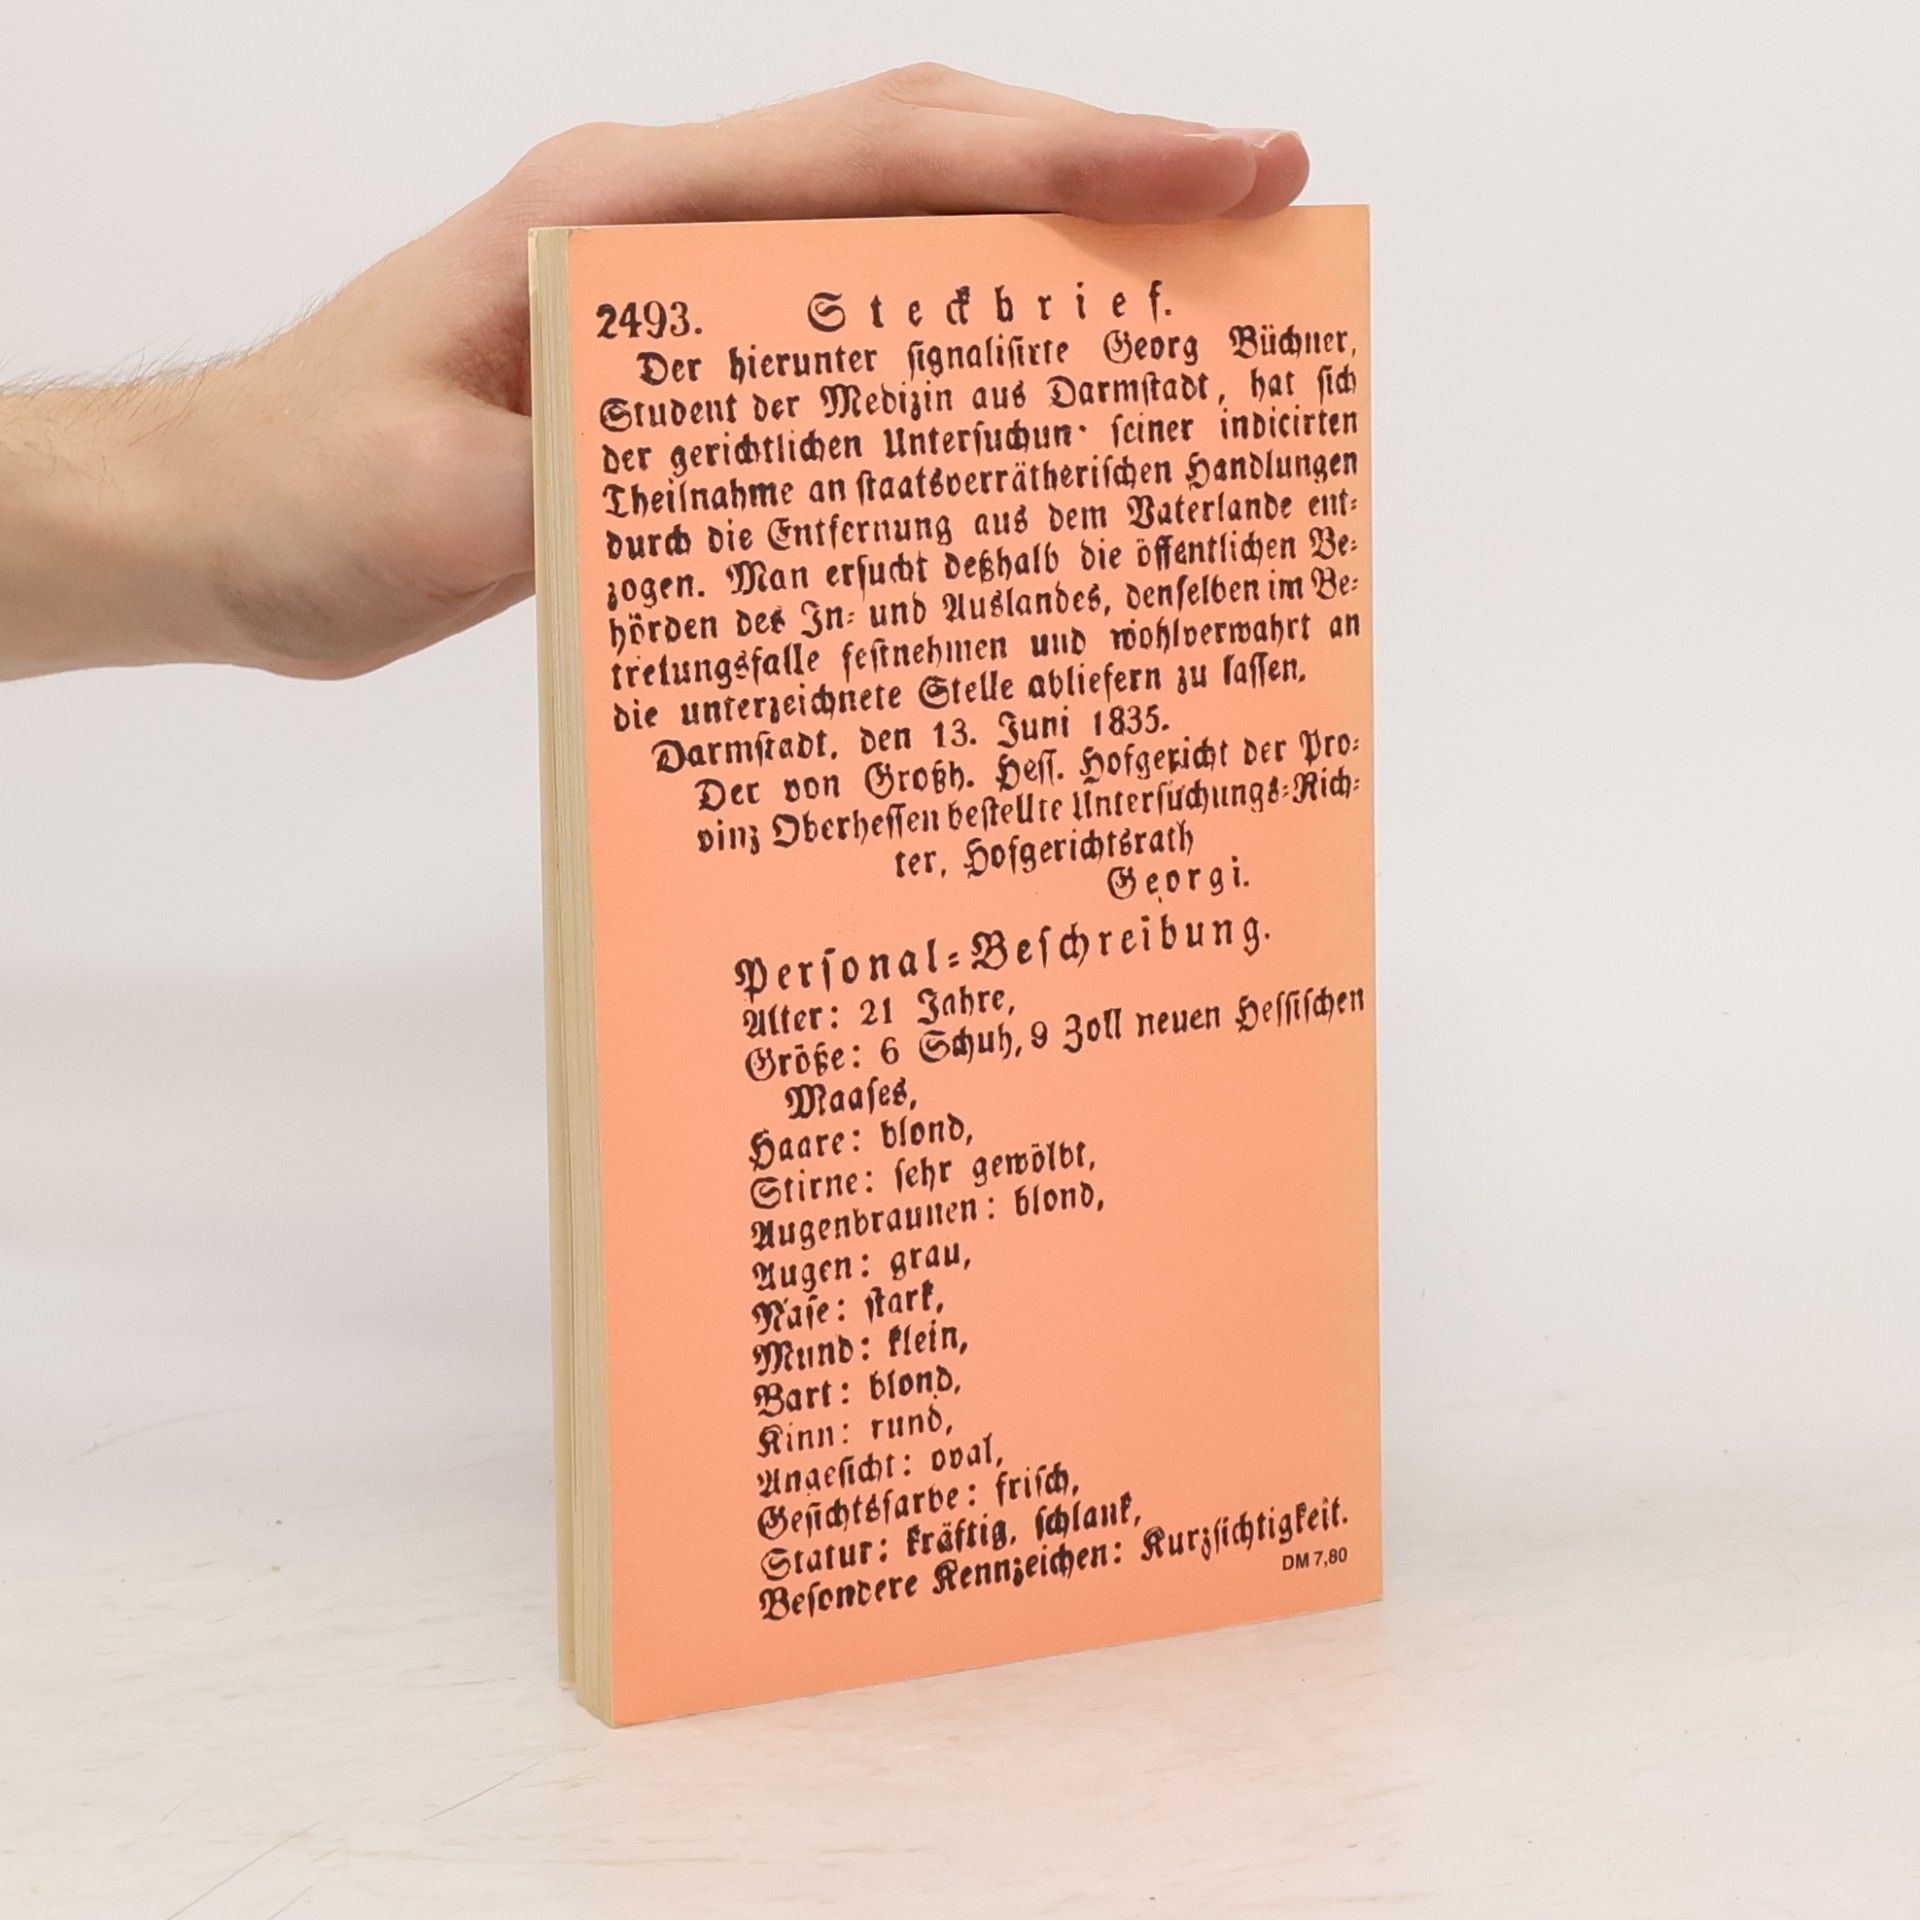 2493. Steckbrief.
Der hierunter signalisirte Georg Büchner,
Student der Medizin aus Darmstadt, hat sich
der gerichtlichen Untersuchun· seiner indicirten
Theilnahme an staatsverrätherischen Handlungen
durch die Entfernung aus dem Vaterlande ent-
zogen. Man ersucht deßhalb die öffentlichen Be-
hörden des In- und Auslandes, denselben im Be-
tretungsfalle festnehmen und wohlverwahrt an
die unterzeichnete Stelle abliefern zu lassen.
Darmstadt, den 13. Juni 1835.
Der von Großh. Hess. Hofgericht der Pro-
vinz Oberhessen bestellte Untersuchungs-Rich-
ter, Hofgerichtsrath
Georgi.
Personal-Beschreibung.
Alter: 21 Jahre,
Größe: 6 Schuh, 9 Zoll neuen Hessischen
Maases,
Haare: blond,
Stirne: sehr gewölbt,
Augenbraunen: blond,
Augen: grau,
Nase: stark,
Mund: klein,
Bart: blond,
Kinn: rund,
Angesicht: oval,
Gesichtsfarbe: frisch,
Statur: kräftig, schlank,
Besondere Kennzeichen: Kurzsichtigkeit.
DM 7,80